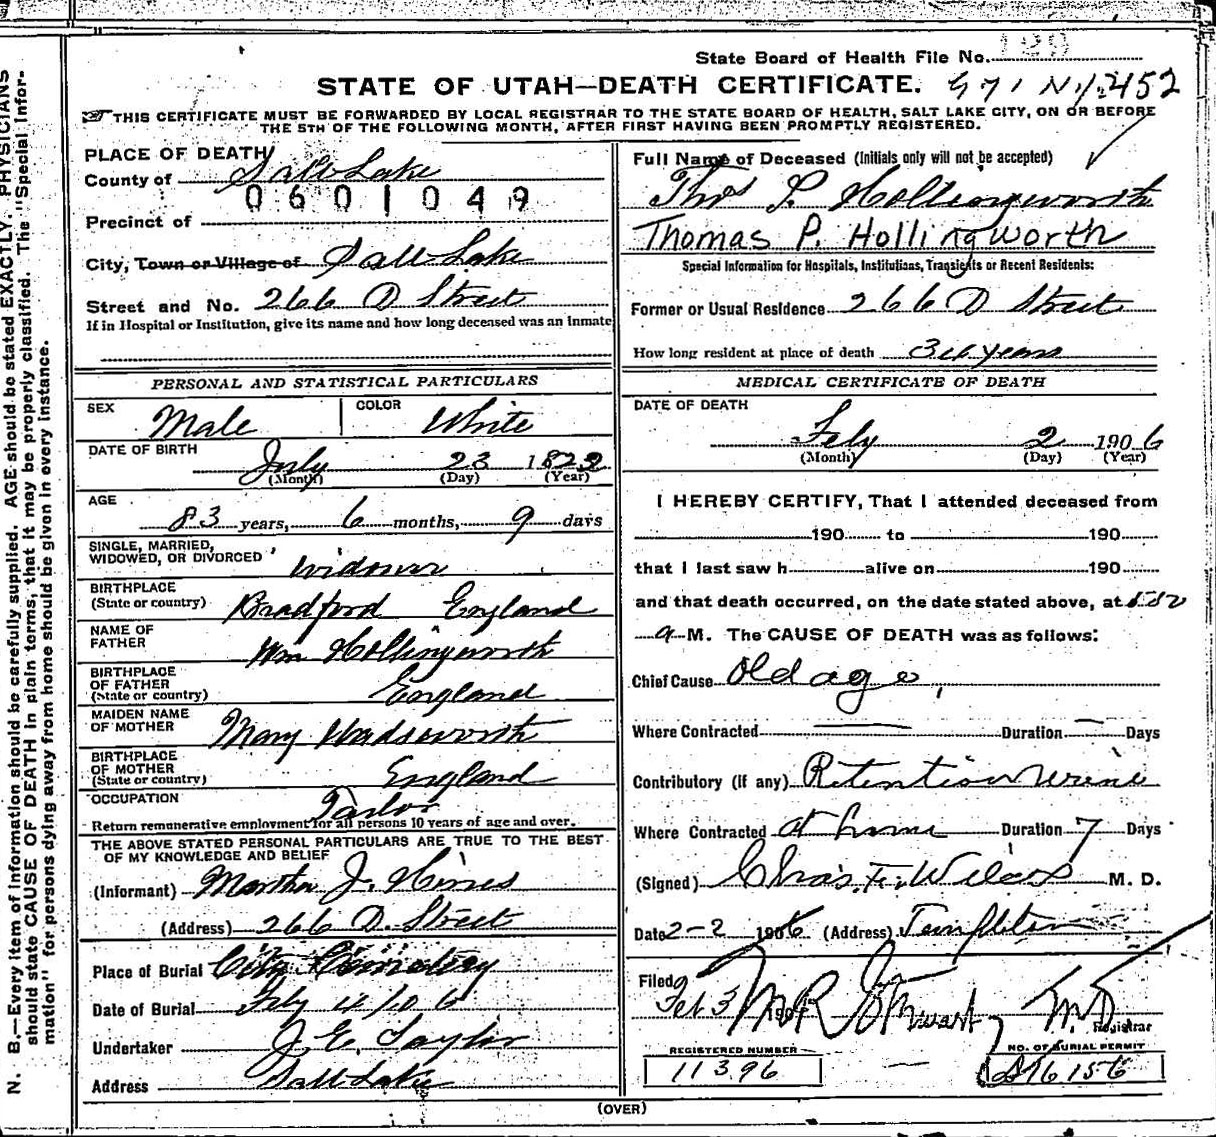 State Board of Health File No. 120
STATE OF UTAH—DEATH CERTIFICATE.
THIS CERTIFICATE MUST BE FORWARDED BY LOCAL REGISTRAR TO THE STATE BOARD OF HEALTH, SALT LAKE CITY, ON OR BEFORE
THE 5TH OF THE FOLLOWING MONTH, AFTER FIRST HAVING BEEN PROMPTLY REGISTERED.
N. B.—Every item of information should be carefully supplied. AGE should be stated EXACTLY. PHYSICIANS
should state CAUSE OF DEATH in plain terms, that it may be properly classified. The "Special Infor-
mation" for persons dying away from home should be given in every instance.
PLACE OF DEATH
County of Salt Lake
0601049
Precinct of
City, Town or Village of Salt Lake
Street and No. 266 D Street
If in Hospital or Institution, give its name and how long deceased was an inmate
PERSONAL AND STATISTICAL PARTICULARS
SEX Male COLOR White
DATE OF BIRTH July 23 1822
(Month) (Day) (Year)
AGE
83 years, 6 months, 9 days
SINGLE, MARRIED,
WIDOWED, OR DIVORCED Widower
BIRTHPLACE
(State or country) Bradford England
NAME OF
FATHER Wm Hollingworth
BIRTHPLACE
OF FATHER
(State or country) England
MAIDEN NAME
OF MOTHER Mary Wadsworth
BIRTHPLACE
OF MOTHER
(State or country) England
OCCUPATION Tailor
Return remunerative employment for all persons 10 years of age and over.
THE ABOVE STATED PERSONAL PARTICULARS ARE TRUE TO THE BEST
OF MY KNOWLEDGE AND BELIEF
(Informant) Martha J. Hines
(Address) 266 D. Street
Place of Burial City Cemetery
Date of Burial Feby 4/06
Undertaker J. E. Taylor
Address Salt Lake
Full Name of Deceased (Initials only will not be accepted)
Thos P. Hollingworth
Thomas P. Hollingworth
Special Information for Hospitals, Institutions, Transients or Recent Residents:
Former or Usual Residence 266 D Street
How long resident at place of death 34 years
MEDICAL CERTIFICATE OF DEATH
DATE OF DEATH
Feby 2 1906
(Month) (Day) (Year)
I HEREBY CERTIFY, That I attended deceased from
190 to 190
that I last saw h alive on 190
and that death occurred, on the date stated above, at
a M. The CAUSE OF DEATH was as follows:
Chief Cause Old age,
Where Contracted — Duration — Days
Contributory (if any) Retention urine
Where Contracted at home Duration 7 Days
(Signed) Chas. F. Wilcox M. D.
Date 2-2 1906 (Address) Templeton
Filed
Feb 3 190 M R Stewart M.D.
Registrar
REGISTERED NUMBER
11396
NO. OF BURIAL PERMIT
(OVER)